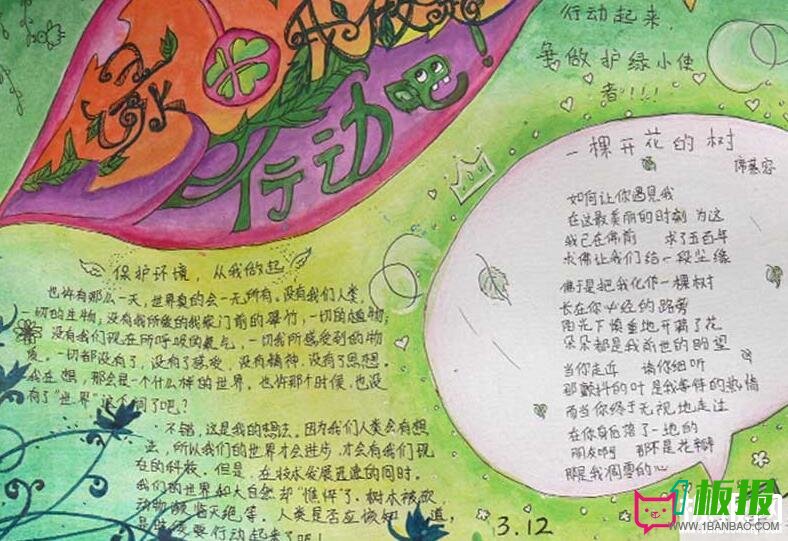 绿
我做起
行动吧!
行动起来,
争做护绿小使
者!!!!
一棵开花的树
席慕容
如何让你遇见我
在这最美丽的时刻 为这
我已在佛前 求了五百年
求佛让我们结一段尘缘
佛于是把我化作一棵树
长在你必经的路旁
阳光下慎重地开满了花
朵朵都是我前世的盼望
当你走近 请你细听
那颤抖的叶 是我等待的热情
而当你终于无视地走过
在你身后落了一地的
朋友啊 那不是花瓣
那是我凋零的心
保护环境,从我做起
也许有那么一天,世界真的会一无所有。没有我们人类,
一切的生物;没有我所爱的我家门前的翠竹,一切的植物;
没有我们现在所呼吸的氧气,一切我所感受到的物
质。一切都没有了,没有了感受,没有精神,没有了思想。
我在想,那会是一个什么样的世界。也许那个时候,也没
有了"世界"这个词了吧?
不错,这是我的想法。因为我们人类会有想
法,所以我们的世界才会进步,才会有我们现
在的科技。但是,在技术发展迅速的同时,
我们的世界和大自然却"憔悴了,树木被砍,
动物濒临灭绝等。人类是否应该知道,
是时候要行动起来了吧!
3.12
1板报
WWW.1BANBAO.COM